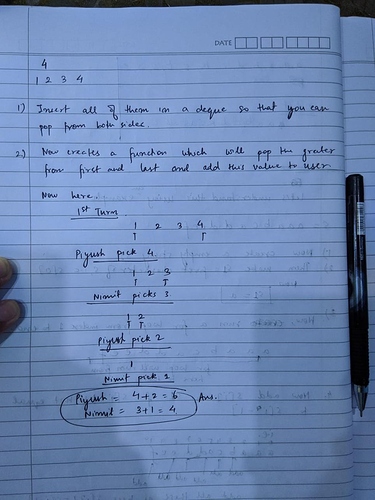 DATE
4
1 2 3 4
1) Insert all of them in a deque so that you can
pop from both sides.
2.) Now creates a function which will pop the grater
from first and last and add this value to user.
Now here.
1st Turn
1 2 3 4
Piyush pick 4.
1 2 3
Nimit picks 3
1 2
Piyush pick 2
1
Nimit pick 1
Piyush = 4+2 = 6 Ans.
Nimit = 3+1 = 4